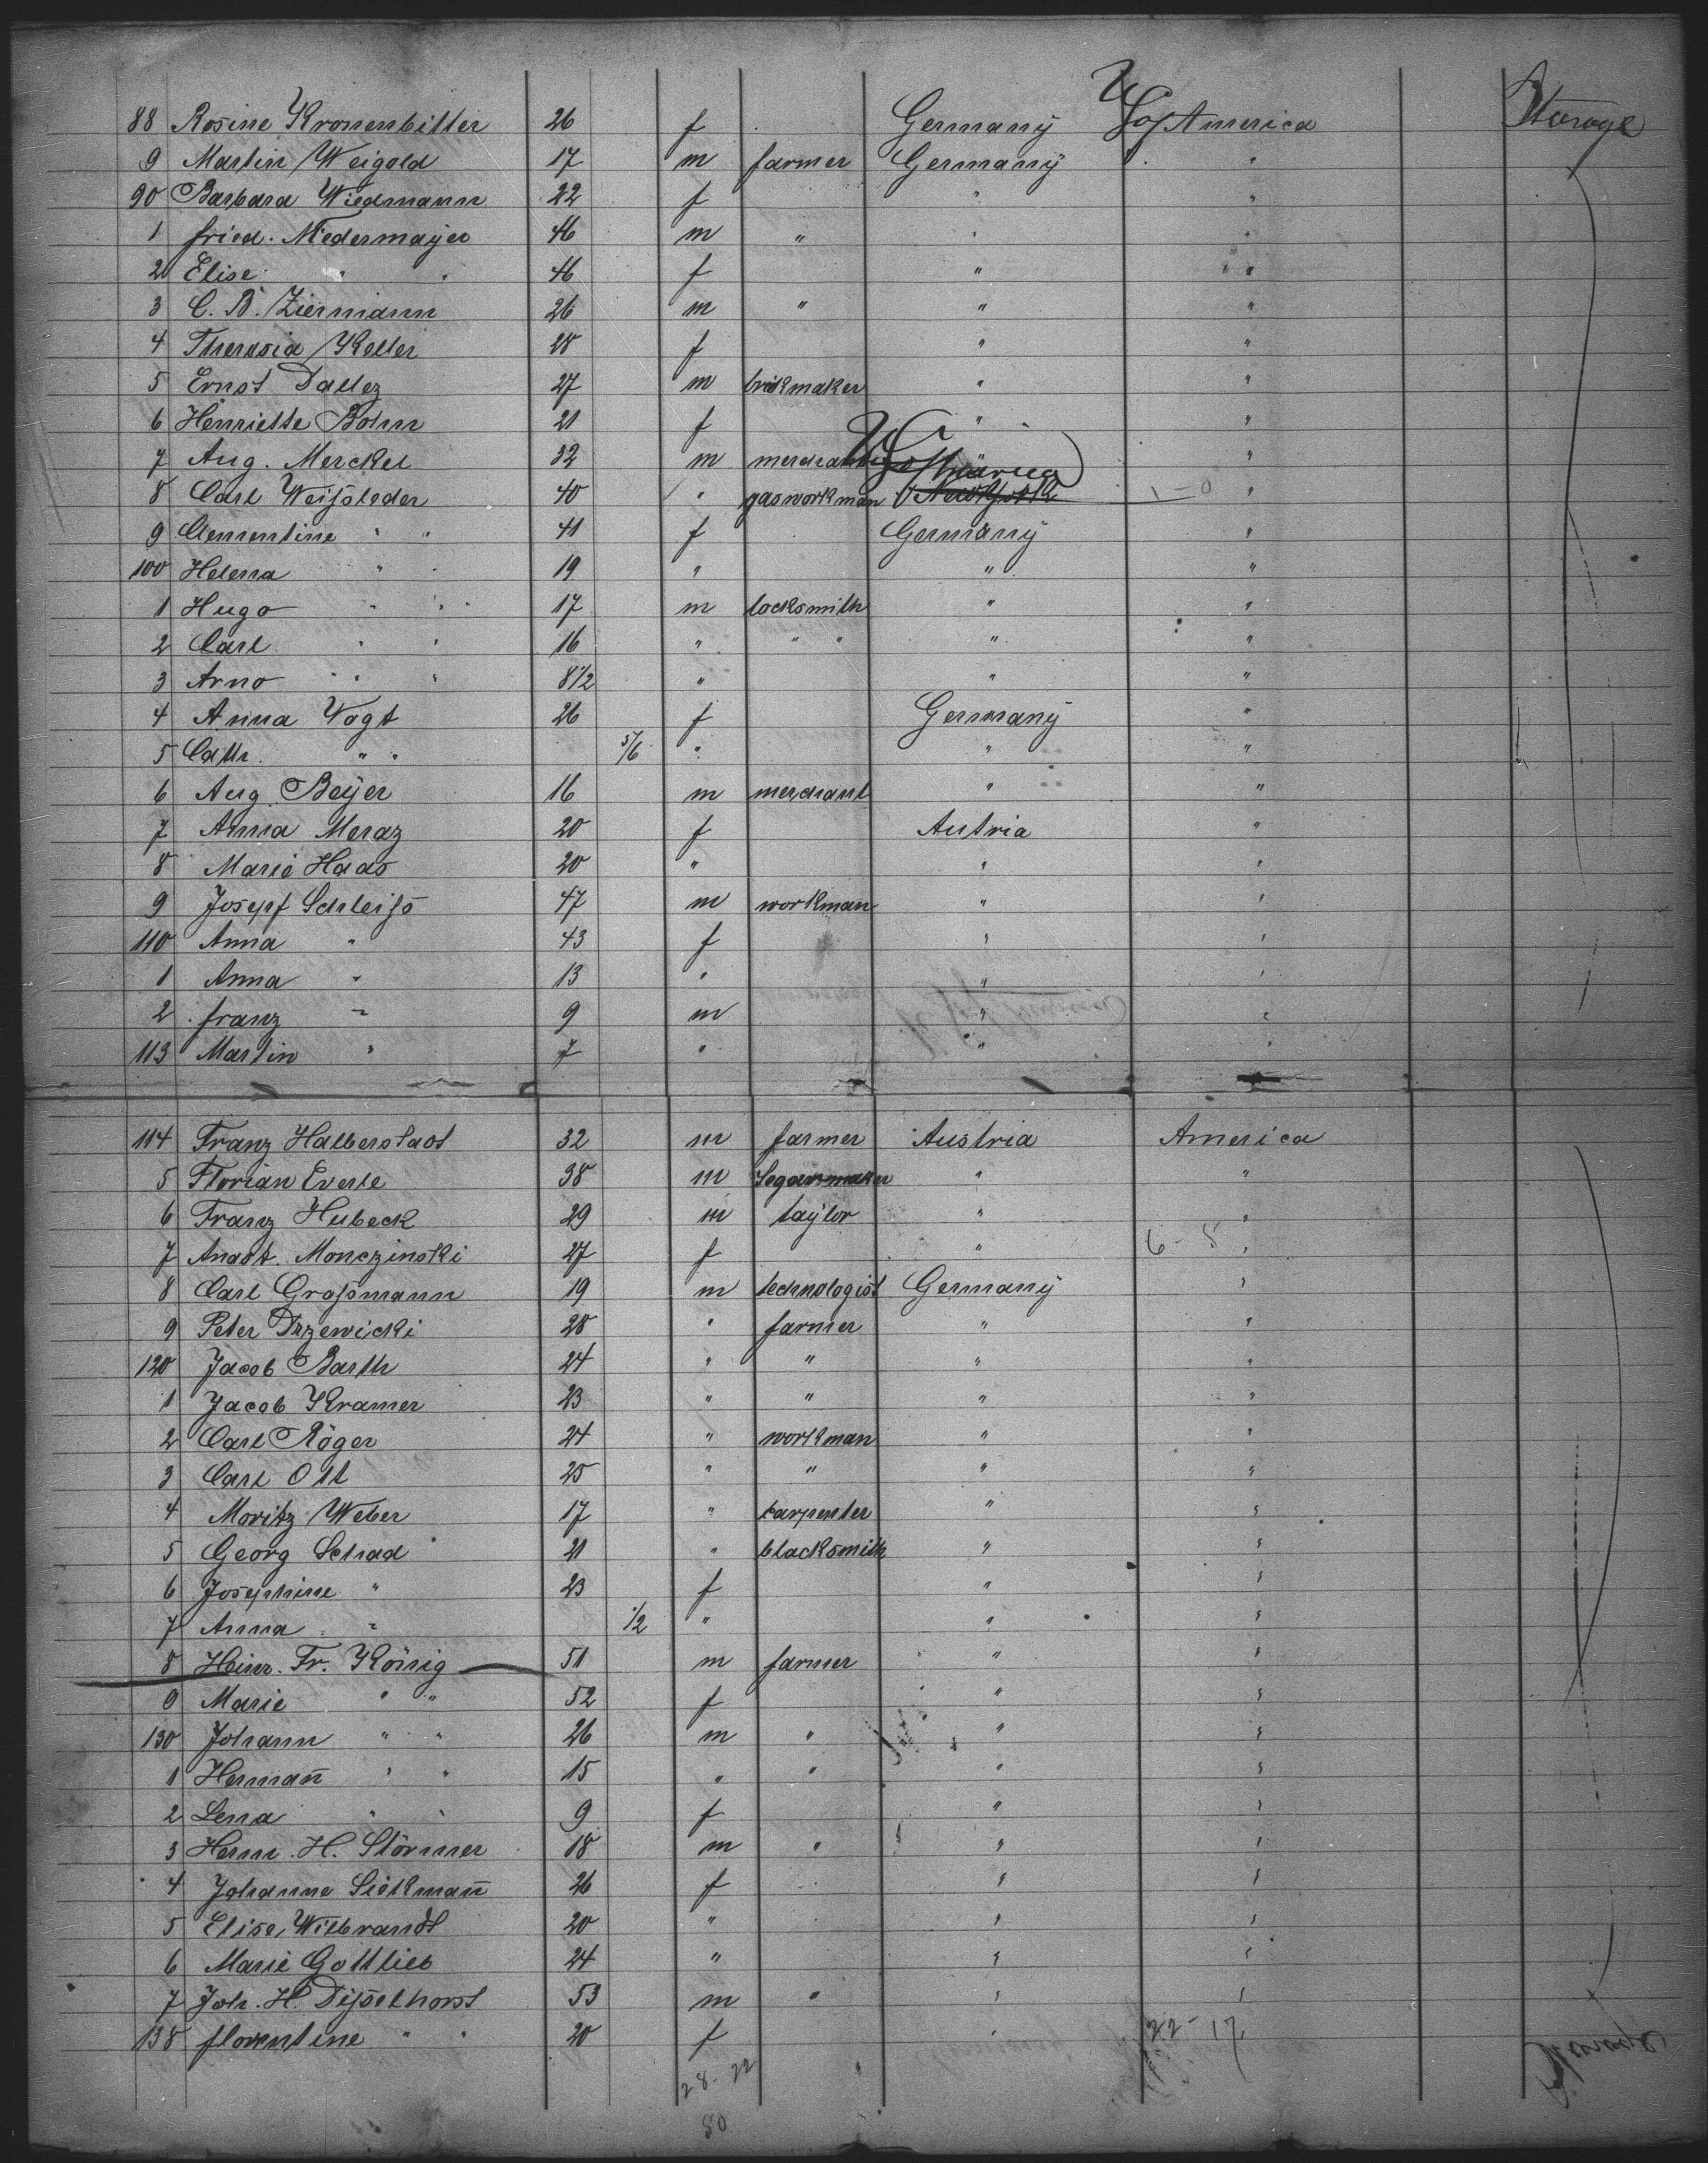 88 Rosine Kronenbitter 26 f Germany U S of America Steerage
9 Martin Weigold 17 m farmer Germany "
90 Barbara Wiedmann 22 f " "
1 Fried. Niedermayer 46 m " " "
2 Elise " " 46 f " "
3 C. B. Ziermann 26 m " " "
4 Therasia Keller 28 f " "
5 Ernst Dallez 27 m brickmaker " "
6 Henriette Bohn 21 f " "
7 Aug. Merckel 32 m merchant "
8 Carl Weißleder 40 " gasworkman New York "
9 Clementine " " 41 f Germany "
100 Helena " " 19 " " "
1 Hugo " " 17 m locksmith " "
2 Carl " " 16 " " " " "
3 Arno " " 8 1/2 " " "
4 Anna Vogt 26 f Germany "
5 Cath. " " 5/6 " " "
6 Aug. Beyer 16 m merchant " "
7 Anna Meraz 20 f Autria "
8 Marie Haas 20 " " "
9 Josepf Schleiß 47 m workman " "
110 Anna " 43 f " "
1 Anna " 13 " " "
2 Franz " 9 m " "
113 Martin " 7 " " "
114 Franz Halberstadt 32 m farmer Austria America
5 Florian Everle 38 m Segarmaker " "
6 Franz Hubeck 29 m taylor " "
7 Anast. Monczinski 27 f " 6 - 5 "
8 Carl Großmann 19 m technologist Germany "
9 Peter Drzewicki 28 " farmer " "
120 Jacob Barth 24 " " " "
1 Jacob Kramer 23 " " " "
2 Carl Röger 24 " workman " "
3 Carl Ott 25 " " " "
4 Moritz Weber 17 " carpenter " "
5 Georg Schad 21 " blacksmith " "
6 Josephine " 23 f " "
7 Anna " 1/2 " " "
8 Heinr. Fr. König 51 m farmer " "
9 Marie " " 52 f " "
130 Johann " " 26 m " " "
1 Hermañ " " 15 " " " "
2 Lena " " 9 f " "
3 Herm. H. Störmer 18 m " " "
4 Johanne Siekmañ 26 f " "
5 Elise Wilbrandt 20 " " "
6 Marie Gottlieb 24 " " "
7 Joh. H. Dißelhorst 53 m " " "
138 Florentine " " 20 f " 22 - 17
28 - 22
80